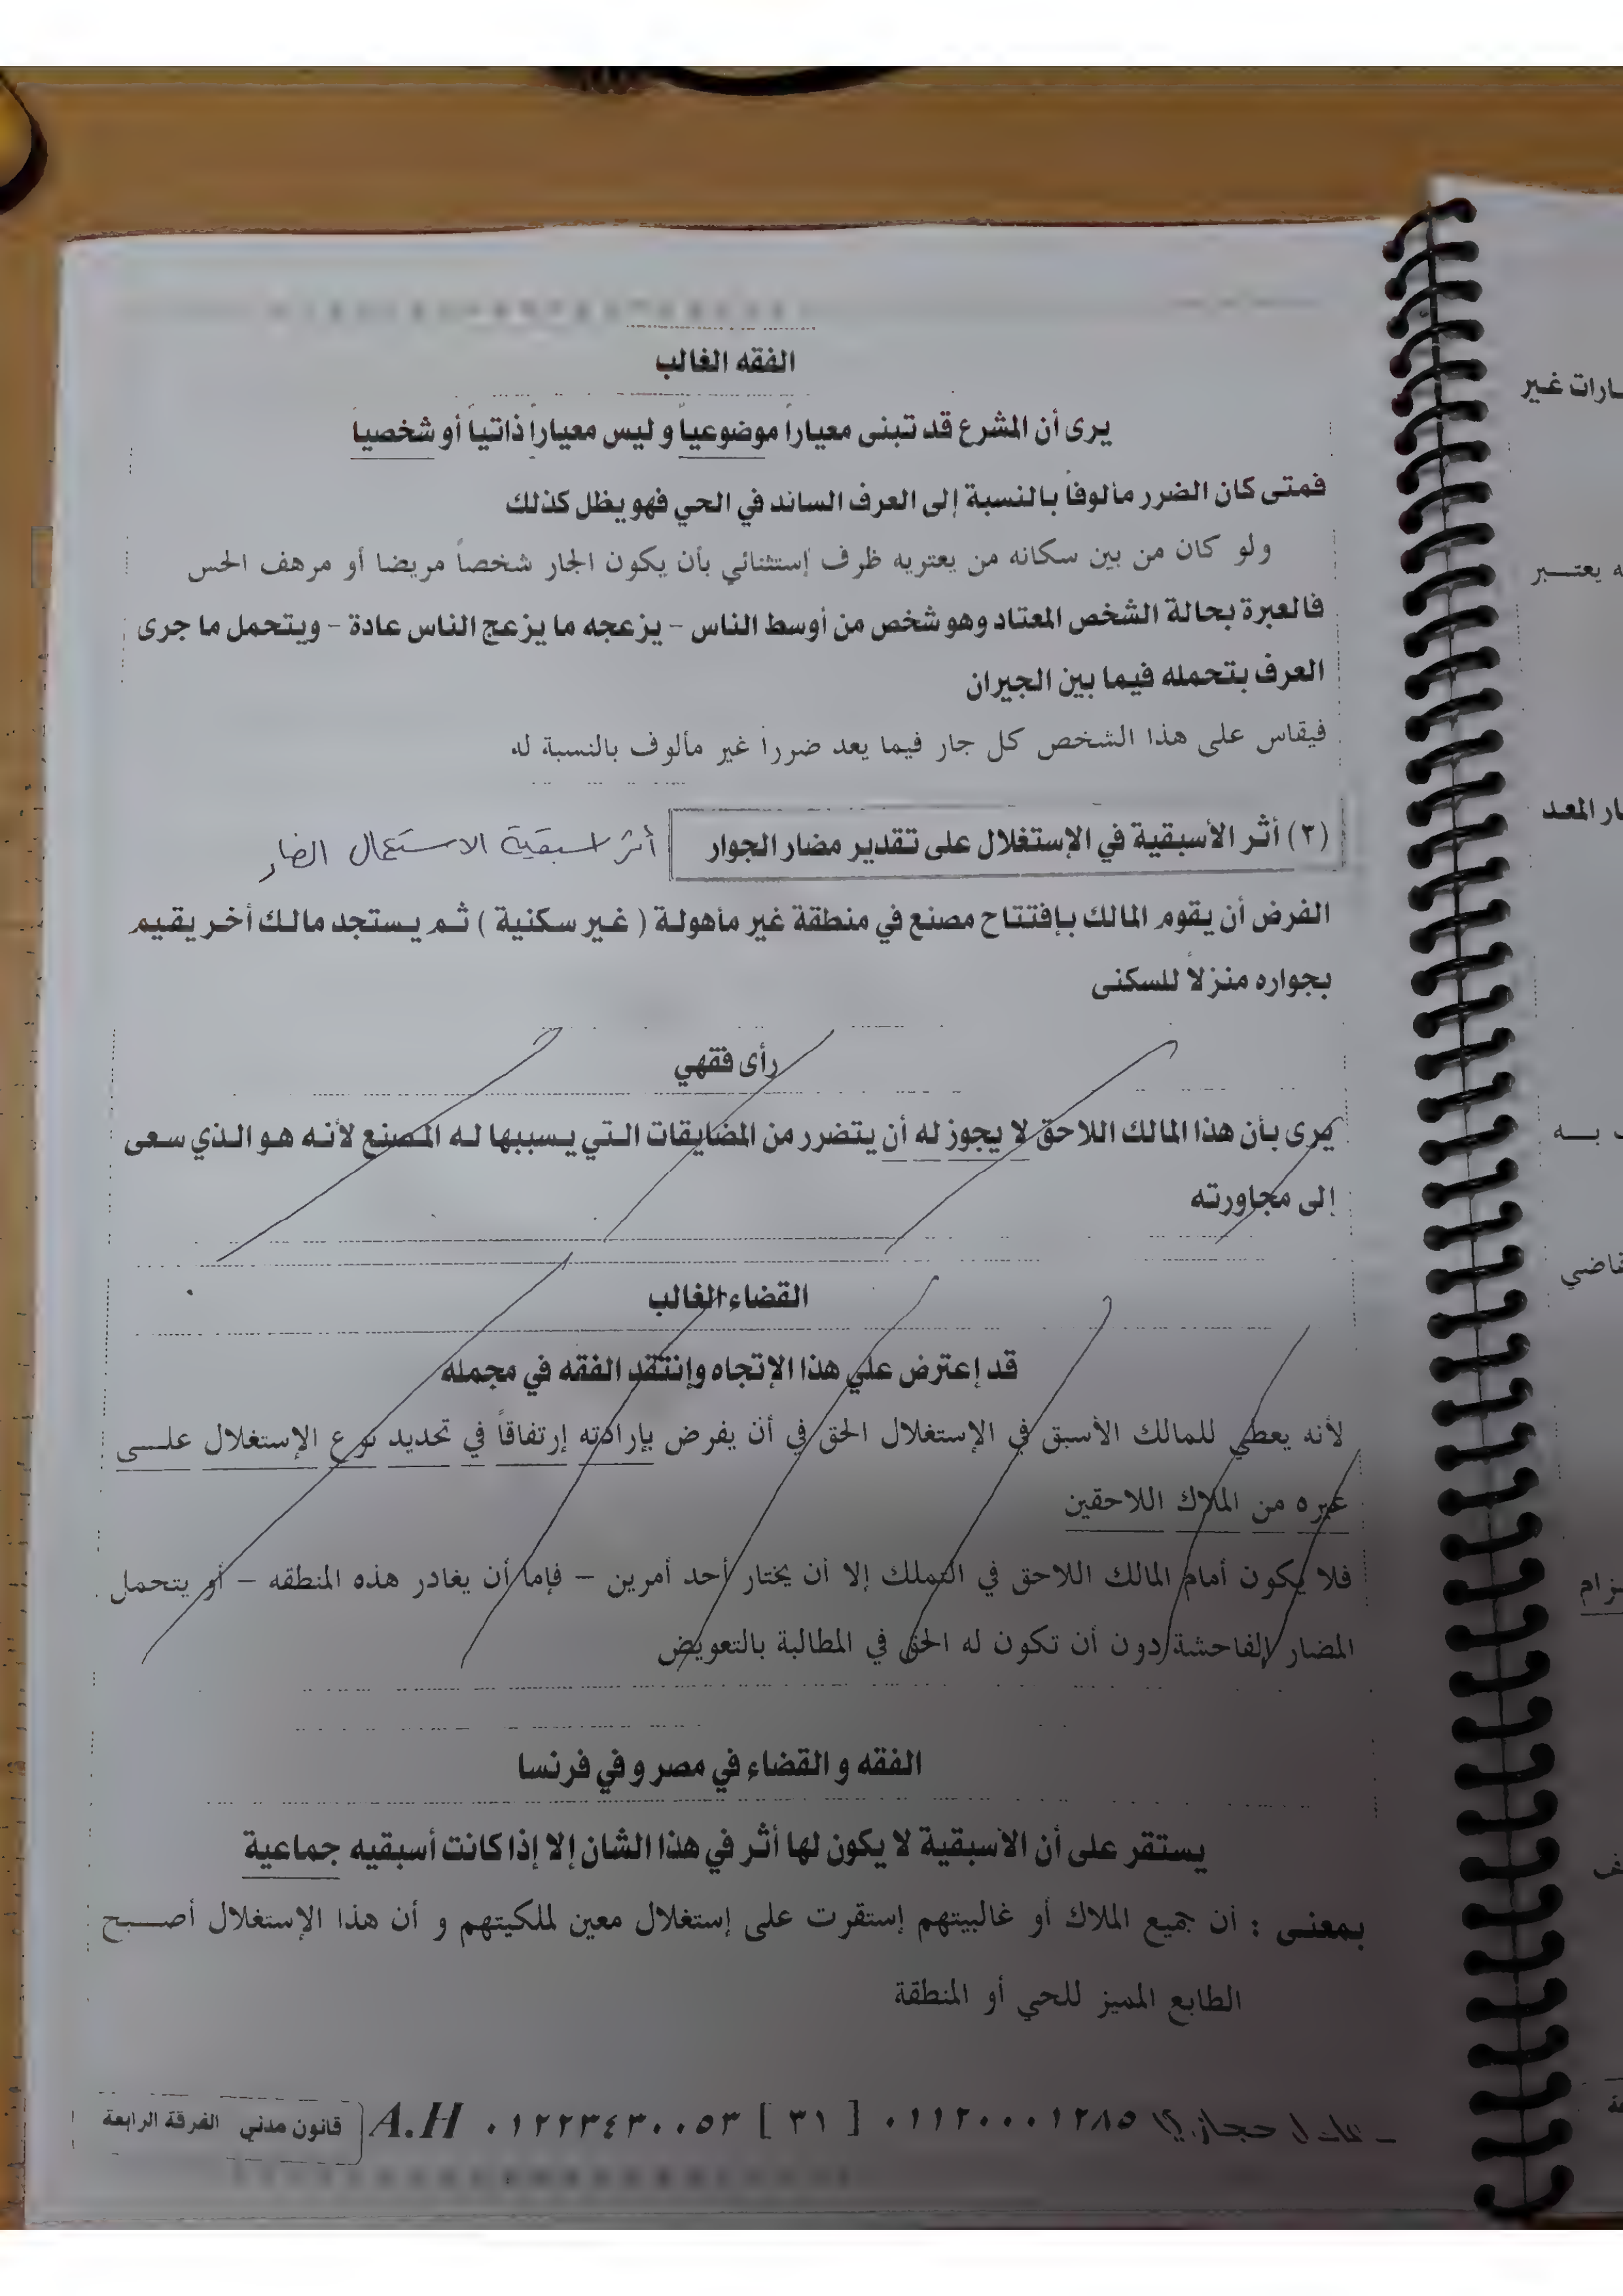 الفقه الغالب
يرى أن المشرع قد تبنى معياراً موضوعياً و ليس معياراً ذاتياً أو شخصياً
فمتى كان الضرر مألوفاً بالنسبة إلى العرف السائد في الحي فهو يظل كذلك
ولو كان من بين سكانه من يعتريه ظرف إستثنائي بأن يكون الجار شخصاً مريضا أو مرهف الحس
فالعبرة بحالة الشخص المعتاد وهو شخص من أوسط الناس - يزعجه ما يزعج الناس عادة - ويتحمل ما جرى
العرف بتحمله فيما بين الجيران
فيقاس على هذا الشخص كل جار فيما يعد ضرراً غير مألوف بالنسبة له
(٣) أثر الأسبقية في الإستغلال على تقدير مضار الجوار
أثر اسبقية الاستعمال الضار
الفرض أن يقوم المالك بإفتتاح مصنع في منطقة غير مأهولة ( غير سكنية ) ثم يستجد مالك أخر يقيم
بجواره منزلاً للسكنى
رأى فقهي
يرى بأن هذا المالك اللاحق لا يجوز له أن يتضرر من المضايقات التي يسببها له المصنع لأنه هو الذي سعى
إلى مجاورته
القضاء الغالب
قد إعترض علي هذا الإتجاه وإنتقد الفقه في مجمله
لأنه يعطي للمالك الأسبق في الإستغلال الحق في أن يفرض بإرادته إرتفاقاً في تحديد نوع الإستغلال على
غيره من الملاك اللاحقين
فلا يكون أمام المالك اللاحق في التملك إلا أن يختار أحد أمرين - فإما أن يغادر هذه المنطقه - أو يتحمل
المضار الفاحشة دون أن تكون له الحق في المطالبة بالتعويض
الفقه و القضاء في مصر و في فرنسا
يستقر على أن الأسبقية لا يكون لها أثر في هذا الشان إلا إذا كانت أسبقيه جماعية
بمعنى : أن جميع الملاك أو غالبيتهم إستقرت على إستغلال معين لملكيتهم و أن هذا الإستغلال أصبح
الطابع المميز للحي أو المنطقة
حجازي ٠١١٢٠٠٠١٢٨٥ [ ٣١ ] ٠١٢٢٣٤٣٠٠٥٣ A.H قانون مدني الفرقة الرابعة
ارات غير
ه يعتبر
ار المعد
به
قاضي
زام